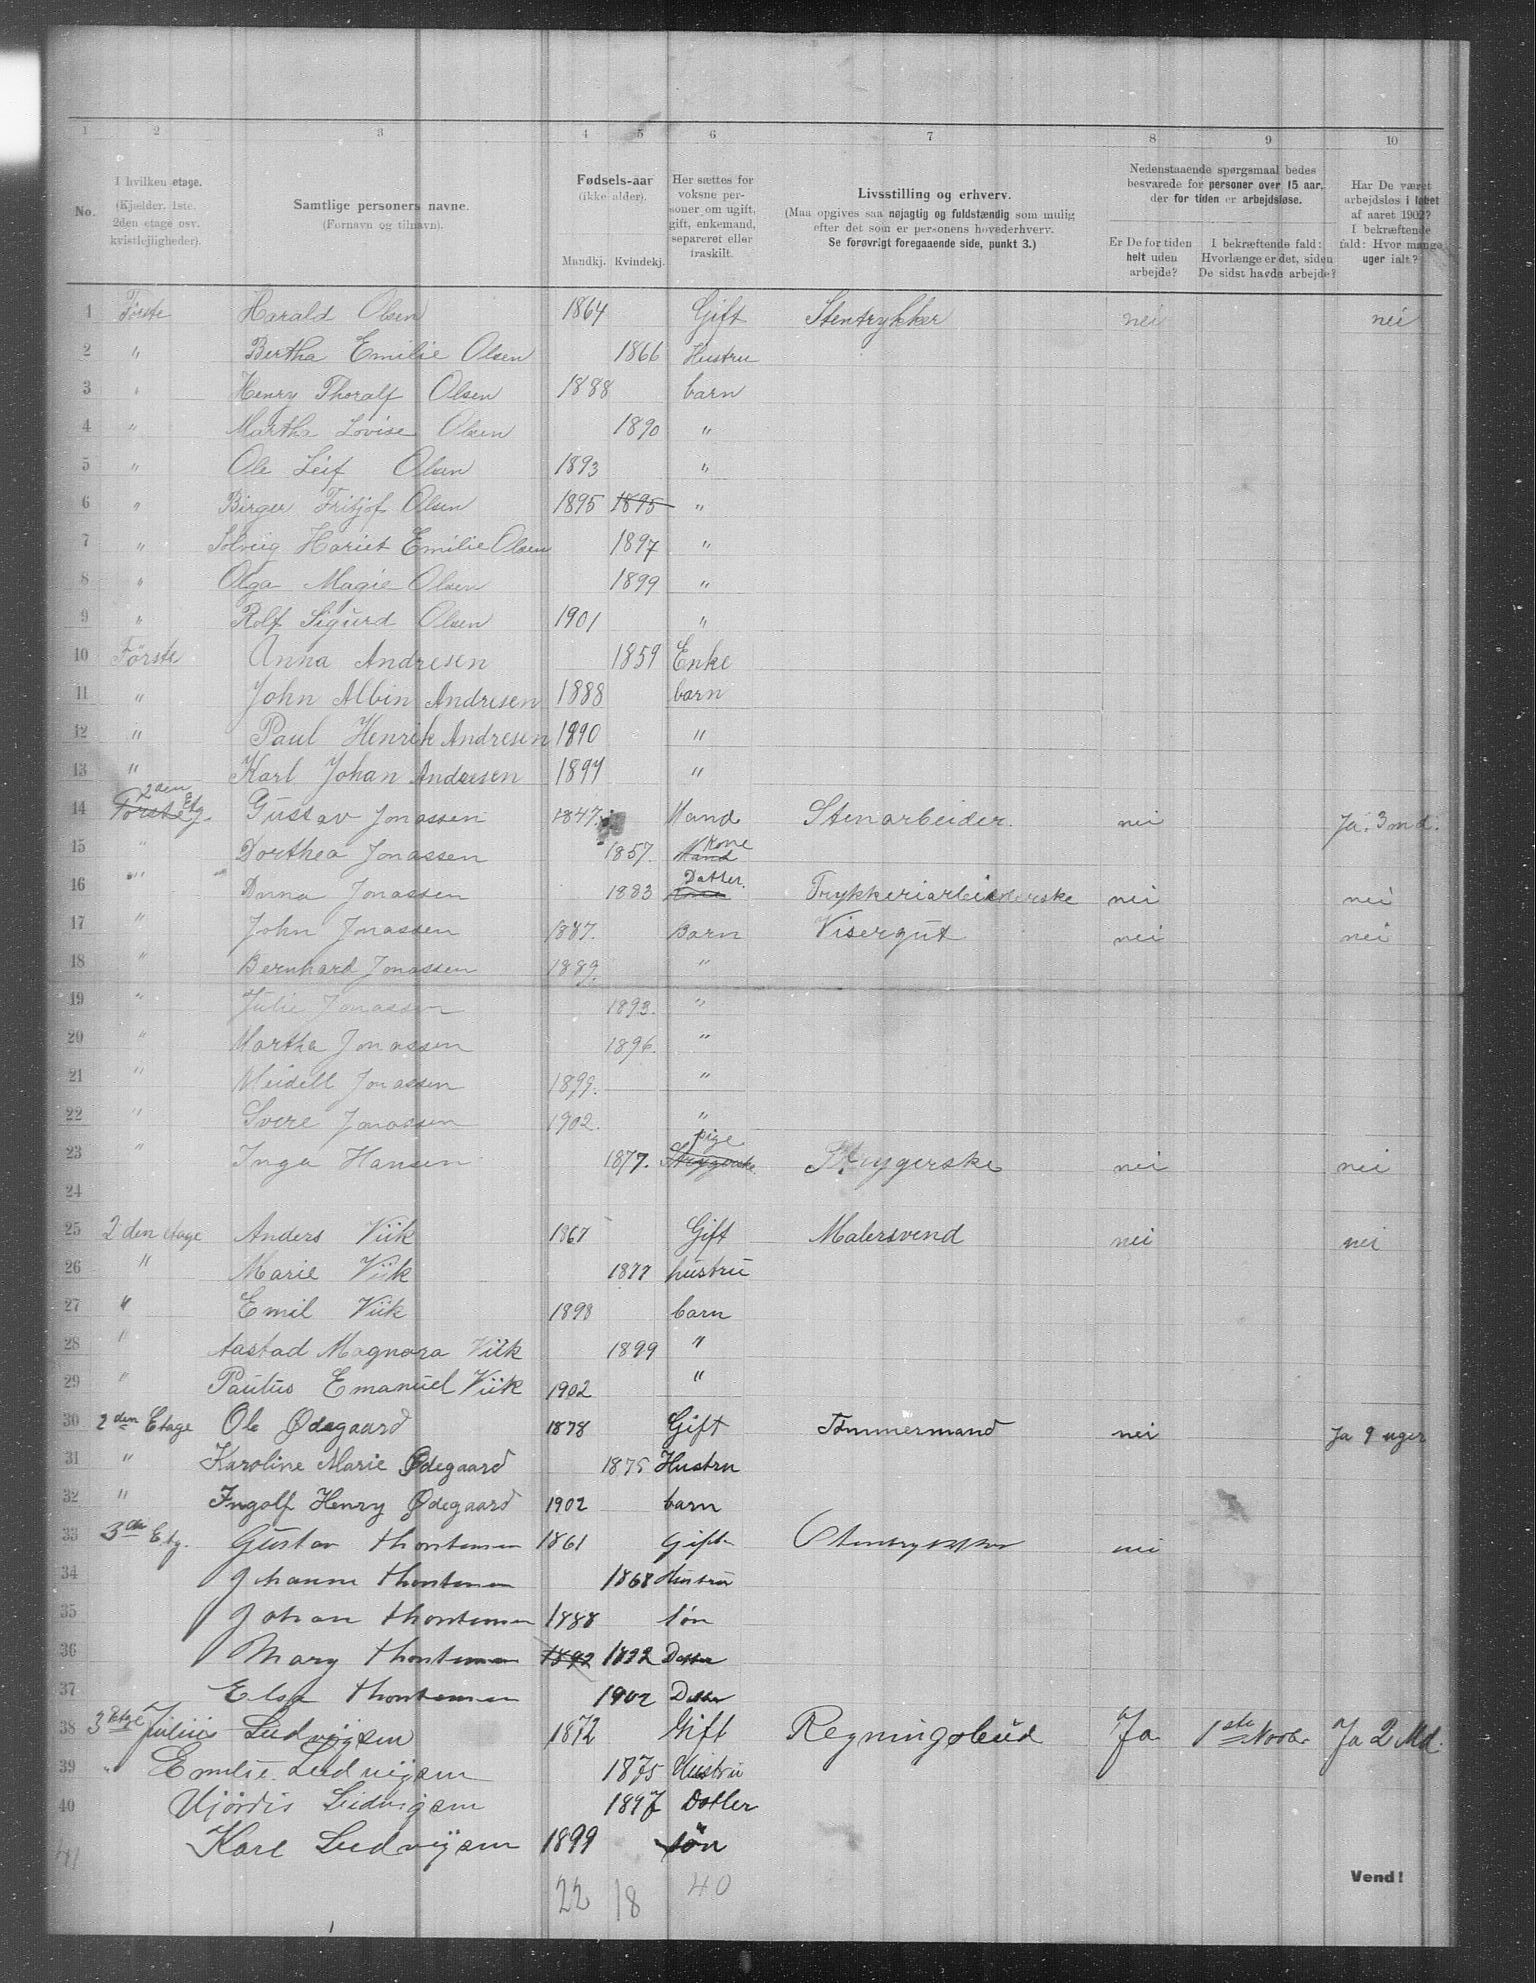 1 2 3 4 5 6 7 8 9 10
No.
I hvilken etage.
(Kjælder, 1ste. 2den etage osv. kvistlejligheder).
Samtlige personers navne.
(Fornavn og tilnavn).
Fødsels-aar
(ikke alder).
Mandkj. Kvindekj.
Her sættes for voksne personer om ugift, gift, enkemand, separeret eller fraskilt.
Livsstilling og erhverv.
(Maa opgives saa nøjagtig og fuldstændig som mulig efter det som er personens hovederhverv.
Se forøvrigt foregaaende side, punkt 3.)
Nedenstaaende spørgsmaal bedes besvarede for personer over 15 aar, der for tiden er arbejdsløse.
Er De for tiden helt uden arbejde?
I bekræftende fald: Hvorlænge er det, siden De sidst havde arbejde?
Har De været arbejdsløs i løbet af aaret 1902? I bekræftende fald: Hvor mange uger ialt?
1 Første Harald Olsen 1864 Gift Stentrykker nei nei
2 " Bertha Emilie Olsen 1866 Hustru
3 " Henry Thoralf Olsen 1888 barn
4 " Martha Lovise Olsen 1890 "
5 " Ole Leif Olsen 1893 "
6 " Birger Fritjof Olsen 1895 1895 "
7 " Solveig Hariet Emilie Olsen 1897 "
8 " Olga Magie Olsen 1899 "
9 " Rolf Sigurd Olsen 1901 "
10 Første Anna Andresen 1859 Enke
11 " John Albin Andresen 1888 barn
12 " Paul Henrik Andresen 1890 "
13 " Karl Johan Andresen 1894 "
14 Første 2den Etg. Gustav Jonassen 1847 Mand Stenarbeider. nei Ja. 3 md.
15 " Dorthea Jonassen 1857. Mand Kone
16 " Anna Jonassen 1883 Datter. Trykkeriarbeiderske nei nei
17 " John Jonassen 1887. Barn Visergut nei nei
18 " Bernhard Jonassen 1889. "
19 " Julie Jonassen 1893. "
20 " Martha Jonassen 1896. "
21 " Meidell Jonassen 1899. "
22 " Svere Jonassen 1902. "
23 " Inga Hansen 1877. Strygerske pige Strygerske nei nei
24
25 2den etage Anders Viik 1867 Gift Malersvend nei nei
26 " Marie Viik 1877 hustru
27 " Emil Viik 1898 barn
28 " Aastad Magnora Viik 1899 "
29 " Paulus Emanuel Viik 1902 "
30 2den Etage Ole Ødegaard 1878 Gift Tømmermand nei Ja 9 uger
31 " Karoline Marie Ødegaard 1875 Hustru
32 " Ingolf Henry Ødegaard 1902 barn
33 3die Etg. Gustav Thorstensen 1861 Gift Stentrykker nei
34 Johanne Thorstensen 1868 Hustru
35 Johan Thorstensen 1888 Søn
36 Mary Thorstensen 1892 1892 Datter
37 Elsa Thorstensen 1902 Datter
38 3 Etage Julius Ludvigsen 1872 Gift Regningsbud Ja 1ste Novbr. Ja 2 Md.
39 " Emilie Ludvigsen 1875 Hustru
40 Hjördis Ludvigsen 1897 Datter
41 Karl Ludvigsen 1899 søn
22 18 40
Vend!